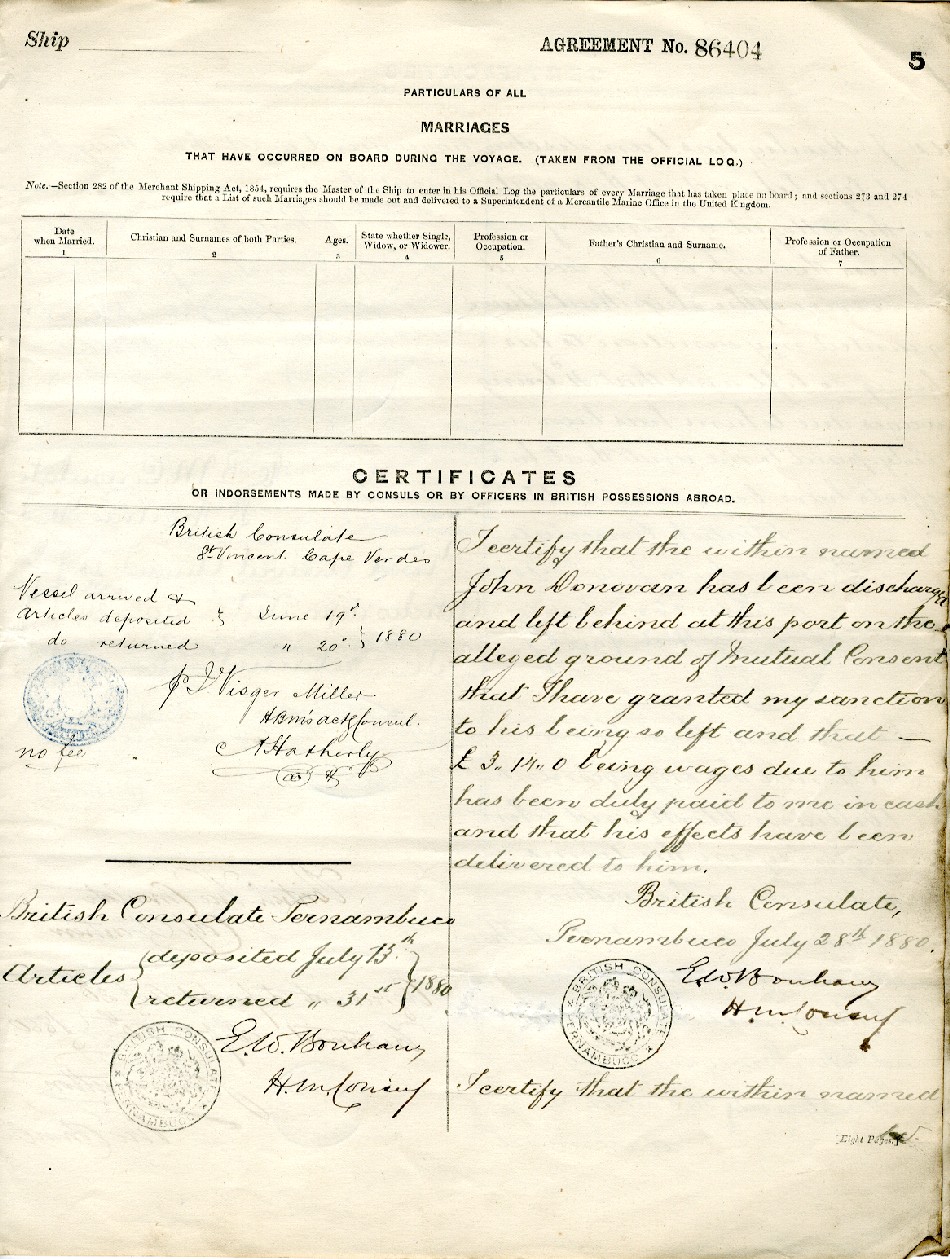 Ship
AGREEMENT No. 86404
5
PARTICULARS OF ALL
MARRIAGES
THAT HAVE OCCURRED ON BOARD DURING THE VOYAGE. (TAKEN FROM THE OFFICIAL LOG.)
Note.—Section 282 of the Merchant Shipping Act, 1854, requires the Master of the Ship to enter in his Official Log the particulars of every Marriage that has taken place on board; and sections 273 and 274
require that a List of such Marriages should be made out and delivered to a Superintendent of a Mercantile Marine Office in the United Kingdom.
Date when Married. 1
Christian and Surnames of both Parties. 2
Ages. 3
State whether Single, Widow, or Widower. 4
Profession or Occupation. 5
Father's Christian and Surname. 6
Profession or Occupation of Father. 7
CERTIFICATES
OR INDORSEMENTS MADE BY CONSULS OR BY OFFICERS IN BRITISH POSSESSIONS ABROAD.
British Consulate
St Vincent Cape Verdes
Vessel arrived &
Articles deposited } June 19th
do returned " 20th } 1880
Visger Miller
HBM's actg Consul.
no fee
British Consulate Pernambuco
Articles { deposited July 13th
returned " 31st } 1880
E.W. Bonham
H.M. Consul
BRITISH CONSULATE PERNAMBUCO
I certify that the within named
John Donovan has been discharged
and left behind at this port on the
alleged ground of Mutual Consent
that I have granted my sanction
to his being so left and that —
£ 3,, 14,, 0 being wages due to him
has been duly paid to me in cash
and that his effects have been
delivered to him.
British Consulate,
Pernambuco July 28th 1880.
E.W. Bonham
H.M. Consul
BRITISH CONSULATE PERNAMBUCO
I certify that the within named
[Eight Pages.]